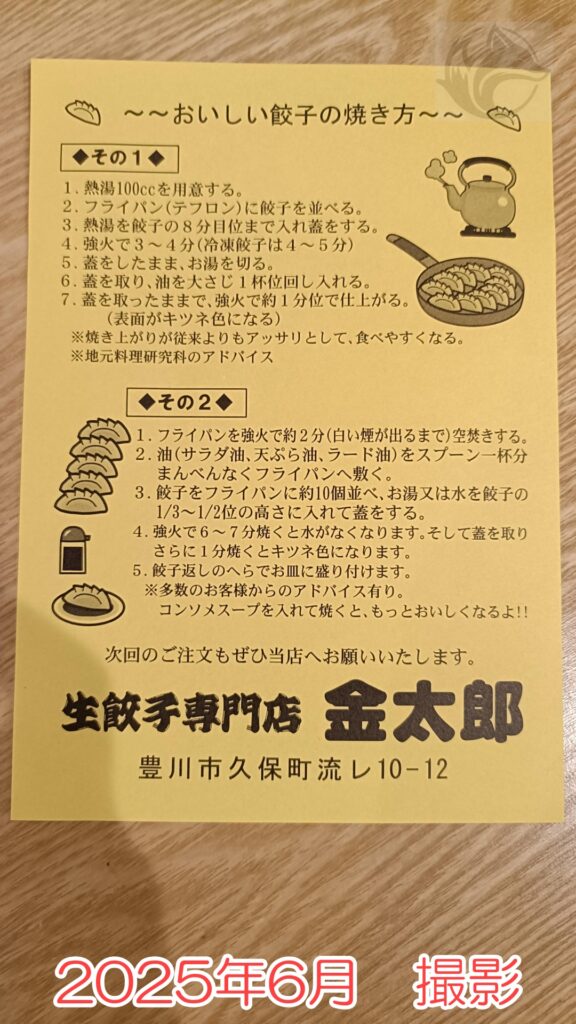 ~~おいしい餃子の焼き方~~
◆その1◆
1. 熱湯100ccを用意する。
2. フライパン(テフロン)に餃子を並べる。
3. 熱湯を餃子の8分目位まで入れ蓋をする。
4. 強火で3~4分(冷凍餃子は4~5分)
5. 蓋をしたまま、お湯を切る。
6. 蓋を取り、油を大さじ1杯位回し入れる。
7. 蓋を取ったままで、強火で約1分位で仕上がる。
(表面がキツネ色になる)
※焼き上がりが従来よりもアッサリとして、食べやすくなる。
※地元料理研究科のアドバイス
◆その2◆
1. フライパンを強火で約2分(白い煙が出るまで)空焚きする。
2. 油(サラダ油、天ぷら油、ラード油)をスプーン一杯分
まんべんなくフライパンへ敷く。
3. 餃子をフライパンに約10個並べ、お湯又は水を餃子の
1/3~1/2位の高さに入れて蓋をする。
4. 強火で6~7分焼くと水がなくなります。そして蓋を取り
さらに1分焼くとキツネ色になります。
5. 餃子返しのへらでお皿に盛り付けます。
※多数のお客様からのアドバイス有り。
コンソメスープを入れて焼くと、もっとおいしくなるよ!!
次回のご注文もぜひ当店へお願いいたします。
生餃子専門店 金太郎
豊川市久保町流レ10-12
2025年6月 撮影